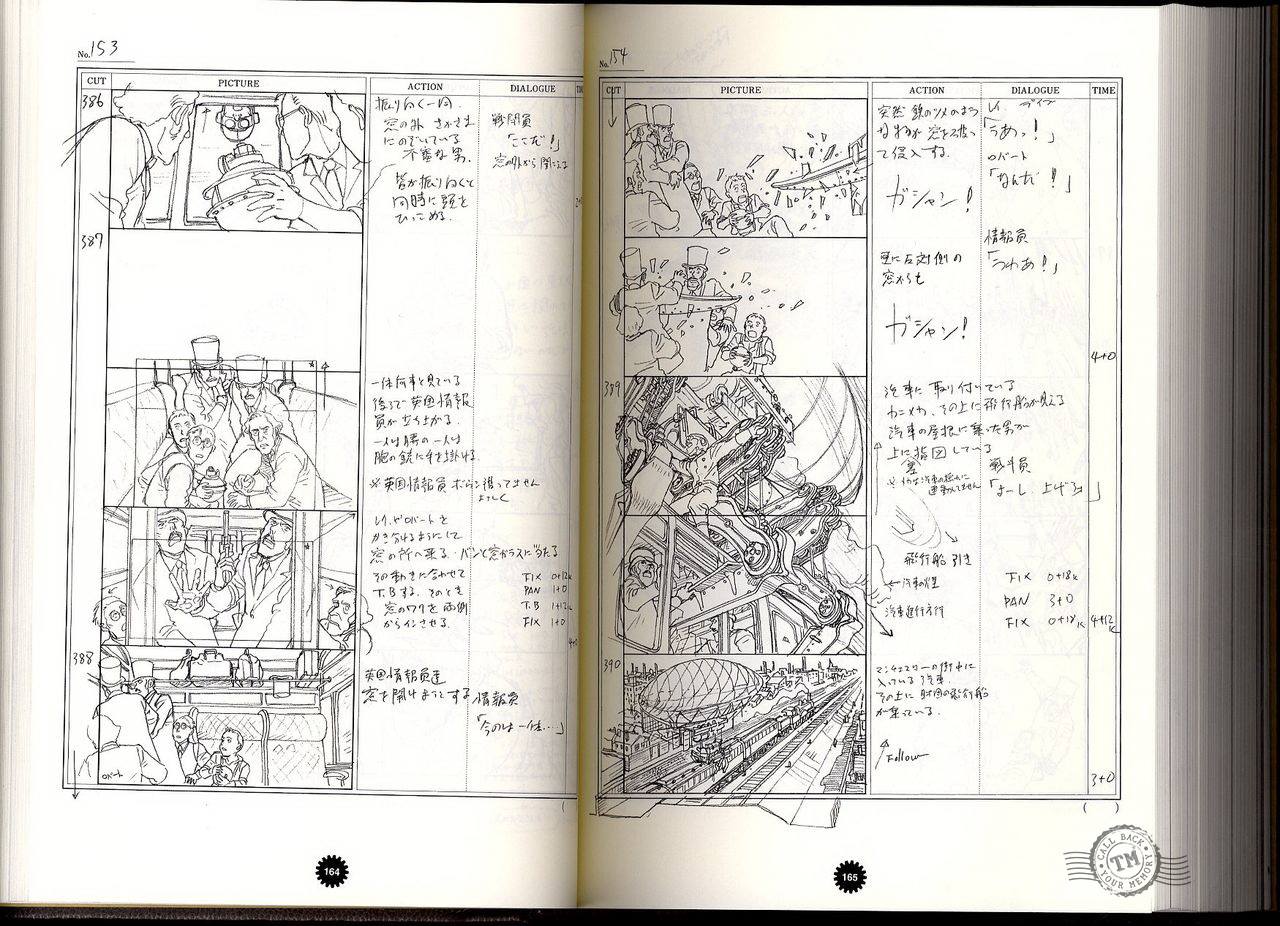 No. 153
CUT PICTURE ACTION DIALOGUE
386
振り向く一同。
窓の外 さかさま
にのぞいている
不審な男。
皆が振り向くと
同時に頭を
ひっこめる。
戦闘員
「ここだ!」
窓の外から聞こえる
387
一体何事と見ている
後ろで英国情報
員が立ち上がる。
一人は腰の一人は
胸の銃に手を掛ける。
※英国情報員
レイやロバートを
かき分けるようにして
窓の所へ来る。バンと窓ガラスに当たる
その動きに合わせて
T.Bする。そのとき
窓のワクを両側
からインさせる。
FIX 0+12K
PAN 1+0
T.B 1+12K
FIX 1+0
388
英国情報員達
窓を開けようとする
情報員
「今のは一体…」
ロバート
164
No. 154
CUT PICTURE ACTION DIALOGUE TIME
突然 鉄のツメのよう
なものが 窓を破っ
て侵入する。
ガシャン!
「うあっ!」
ロバート
「なんだ!」
更に反対側の
窓からも
ガシャン!
情報員
「うわあ!」
4+0
389
汽車に 取り付いている
カニメカ、その上に飛行船が見える
汽車の屋根に乗った男が
上に指図している
「よーし、上げろ」
飛行船 引き
汽車の煙
汽車進行方向
FIX 0+18K
PAN 3+0
FIX 0+18K
4+12K
390
マンチェスターの街中に
入っている 汽車
その上に 財団の飛行船
が乗っている。
Follow
3+0
( )
165
CALL BACK
TM
YOUR MEMORY